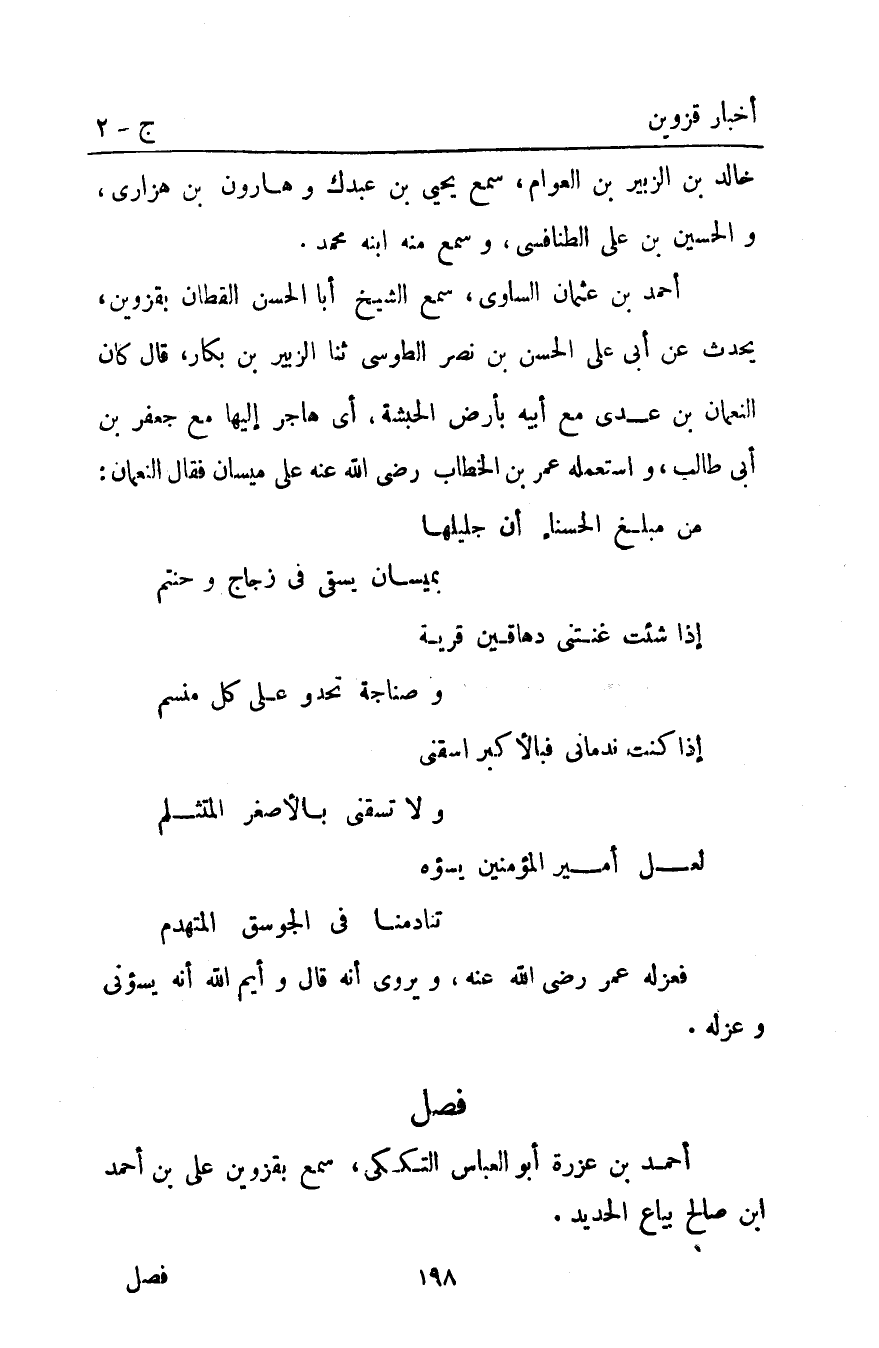 أخبار قزوين
ج - ٢
خالد بن الزبير بن العوام، سمع يحيى بن عبدك و هارون بن هزارى،
و الحسين بن على الطنافسى، و سمع منه ابنه محمد .
أحمد بن عثمان الساوى، سمع الشيخ أبا الحسن القطان بقزوين،
يحدث عن أبى على الحسن بن نصر الطوسى ثنا الزبير بن بكار، قال كان
النعمان بن عـدى مع أبيه بأرض الحبشة، أى هاجر إليها مع جعفر بن
أبى طالب، و استعمله عمر بن الخطاب رضى الله عنه على ميسان فقال النعمان:
من مبلـغ الحسناء أن جليلهـا
بميسـان يسقى فى زجاج و حنتم
إذا شئت غنـتنى دهاقـين قريـة
و صناجة تحدو عـلى كل منسم
إذا كنت ندمانى فبالأكبر اسقنى
و لا تسقنى بـالأصغر المتثـلم
لعـل أمـير المؤمنين يسؤه
تنادمنـا فى الجوسق المتهدم
فعزله عمر رضى الله عنه، و يروى أنه قال و أيم الله أنه يسؤنى
و عزله .
فصل
أحمـد بن عزرة أبو العباس التـكـكى، سمع بقزوين على بن أحمد
ابن صالح بياع الحديد .
١٩٨
فصل